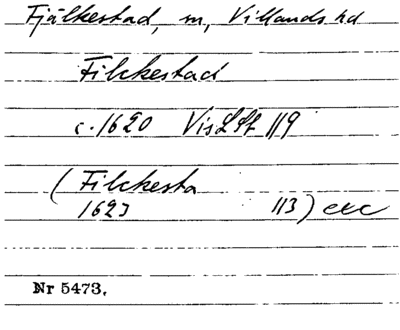 Fjälkestad, m, Villands hd
Filckestad
c. 1620 VisLSt 119
(Filckesta
1623 113) etc
Nr 5473.